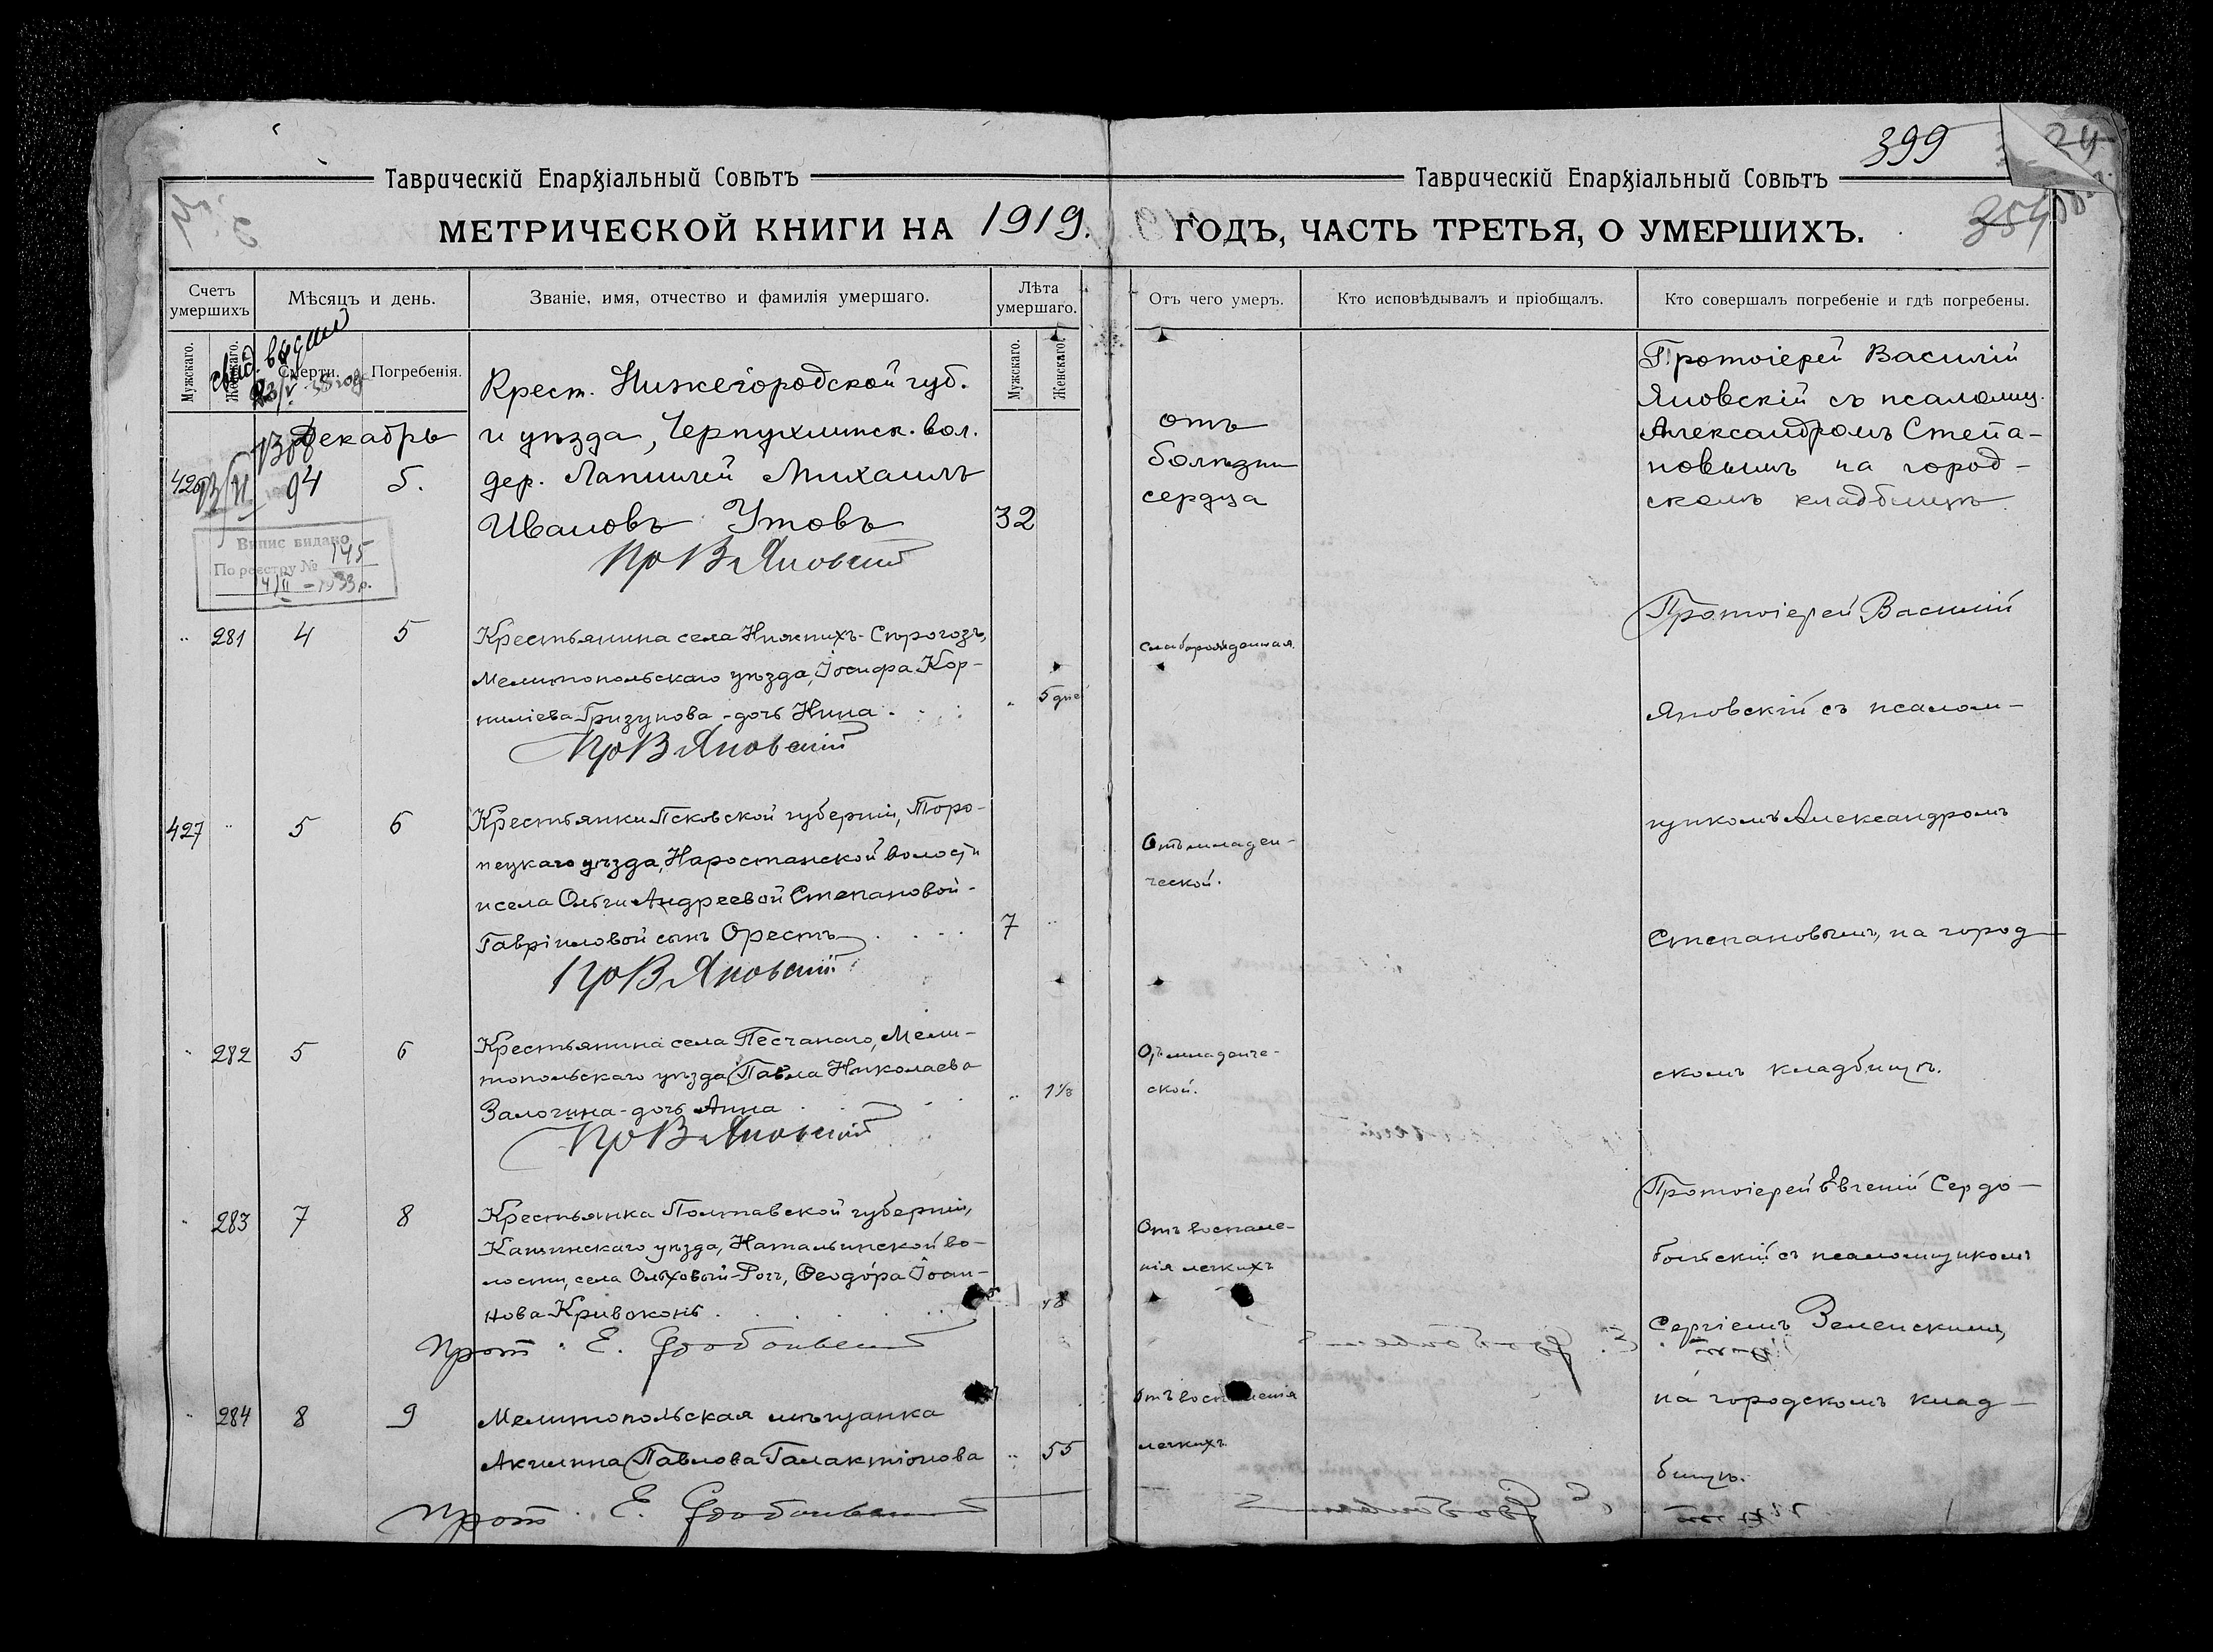 399
24
Таврическій Епархіальный Совѣтъ
Таврическій Епархіальный Совѣтъ
354
МЕТРИЧЕСКОЙ КНИГИ НА 1919. ГОДЪ, ЧАСТЬ ТРЕТЬЯ, О УМЕРШИХЪ.
Счетъ умершихъ
Мѣсяцъ и день.
Званіе, имя, отчество и фамилія умершаго.
Лѣта умершаго.
Отъ чего умеръ.
Кто исповѣдывалъ и пріобщалъ.
Кто совершалъ погребеніе и гдѣ погребены.
Мужскаго.
Женскаго.
Смерти.
Погребенія.
Мужскаго.
Женскаго.
свид.
Декабрь
426
4
5.
Крест. Нижегородской губ.
и уѣзда, Чернухинск. вол.
дер. Лапшихи Михаилъ
Ивановъ Утовъ
32
Пр В Яновскій
отъ
болѣзни
сердца
Протоіерей Василій
Яновскій съ псаломщ.
Александромъ Степа-
новымъ на город-
скомъ кладбищѣ.
Випис видано
По реєстру № 145
14/II - 1933 р.
" 281 4 5
Крестьянина села Нижнихъ-Сѣрогозъ,
Мелитопольскаго уѣзда, Іосифа Кор-
ниліева Гризунова - дочь Нина
5 дне
Пр В Яновскій
слаборожденная.
Протоіерей Василій
Яновскій съ псалом-
427 " 5 6
Крестьянки Псковской губерніи, Торо-
пецкаго уѣзда, Наростанской волости
и села Ольги Андреевой Степановой-
Гавріиловой сынъ Орестъ
7 "
Пр В Яновскій
Отъ младен-
ческой.
щикомъ Александромъ
Степановымъ, на город
" 282 5 6
Крестьянина села Песчанаго, Мели-
топольскаго уѣзда Павла Николаева
Залогина - дочь Анна
Пр В Яновскій
От младенче-
ской.
скомъ кладбищѣ.
" 283 7 8
Крестьянка Полтавской губерніи,
уѣзда, Натальинской во-
лости, села Ольховый-Рогъ, Ѳеодора Іоан-
нова Кривоконь
48
Прот. Е. Сердобольскій
Отъ воспале-
нія легкихъ
Протоіерей Евгеній Сердо-
больскій съ псаломщикомъ
Сергіемъ Зеленскимъ,
" 284 8 9
Мелитопольская мѣщанка
Акилина Павлова Галактіонова
" 55
Прот. Е. Сердобольскій
Отъ воспаленія
легкихъ
на городскомъ клад-
бищѣ.